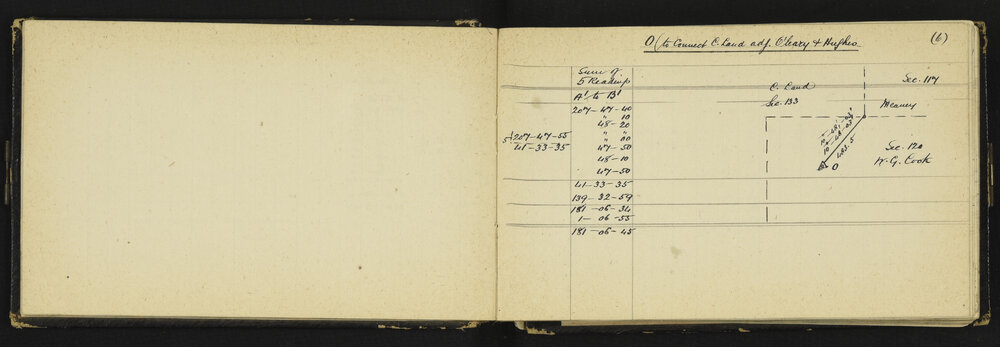 O (to Connect C. Land adj. O'Leary & Hughes
(6)
Sum of
5 Readings
A' to B'
207-47-40
" 10
48-20
" "
" 00
47-50
48-10
47-50
5) 207-47-55
41-33-35
41-33-35
139-32-59
181-06-34
1-06-55
181-06-45
C. Land
Sec. 133
Sec. 117
Meaney
Sec. 120
W. G. Cook
483.5
O